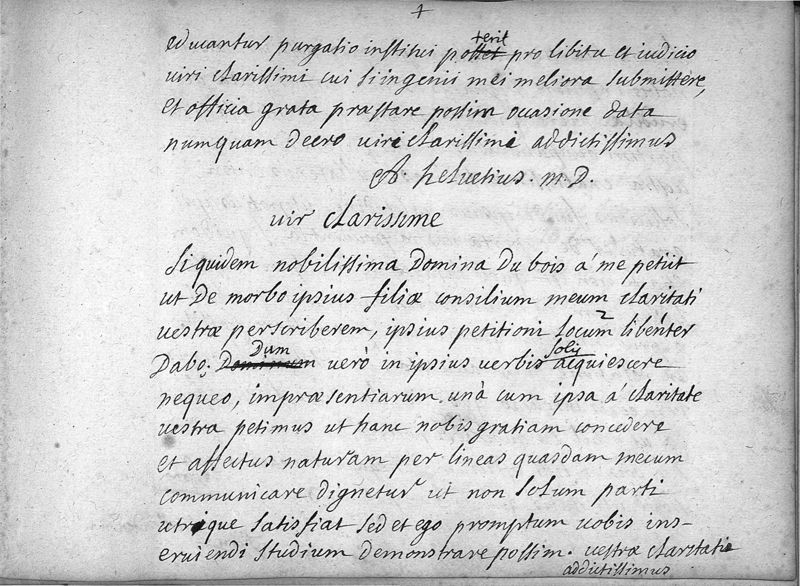 4
educantur purgatio institui posset terit pro libitu et iudicio
viri clarissimi cui si ingenii mei meliora submittere,
et officia grata præstare possim occasione data
numquam deero viri clarissimi addictissimus
A helvetius. m.D.
vir clarissime
Siquidem nobilissima Domina Du bois á me petiit
ut De morbo ipsius filiæ consilium meum claritati
vestræ perscriberem, ipsius petitioni locum 2 libenter
Dabo; Dominum Dum verò in ipsius verbis solis acquiescere
nequeo, impræsentiarum unà cum ipsa á claritate
vestra petimus ut hanc nobis gratiam concedere
et affectus naturam per lineas quasdam mecum
communicare dignetur ut non solum parti
utrique satisfiat sed et ego promptum vobis ins-
erviendi studium demonstrare possim. vestræ claritatis
addictissimus